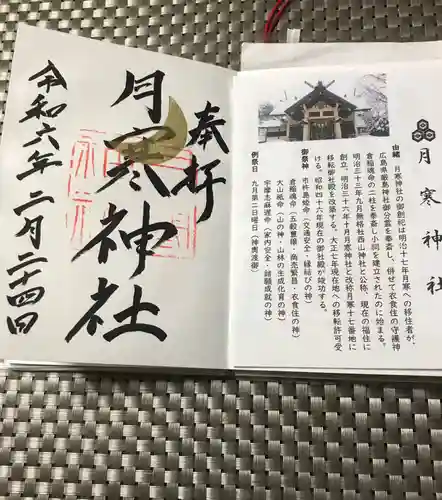 奉拝
月寒神社
令和六年二月二十四日
月寒神社
由緒 月寒神社の御創祀は明治十七年月寒への移住者が、
広島県厳島神社御分霊を奉斎し、併せて衣食住の守護神
倉稲魂命の二柱を奉斎し小祠を建立されたのに始まる。
明治三十三年九月無格社西山神社と公称、現在の福住に
創立。明治三十六年十月月寒神社と改称月寒十七番地に
移転御社殿を改築する。大正七年現在地への移転許可受
ける。昭和四十六年現在の御社殿が竣功する。
御祭神 市杵島姫命(交通安全・縁結びの神)
倉稲魂命(五穀豊壌・商売繁昌・衣食住の神)
大山祇命(山の神・山林の生成化育の神)
宇摩志麻遅命(家内安全・諸願成就の神)
例祭日 九月第二日曜日(神輿渡御)